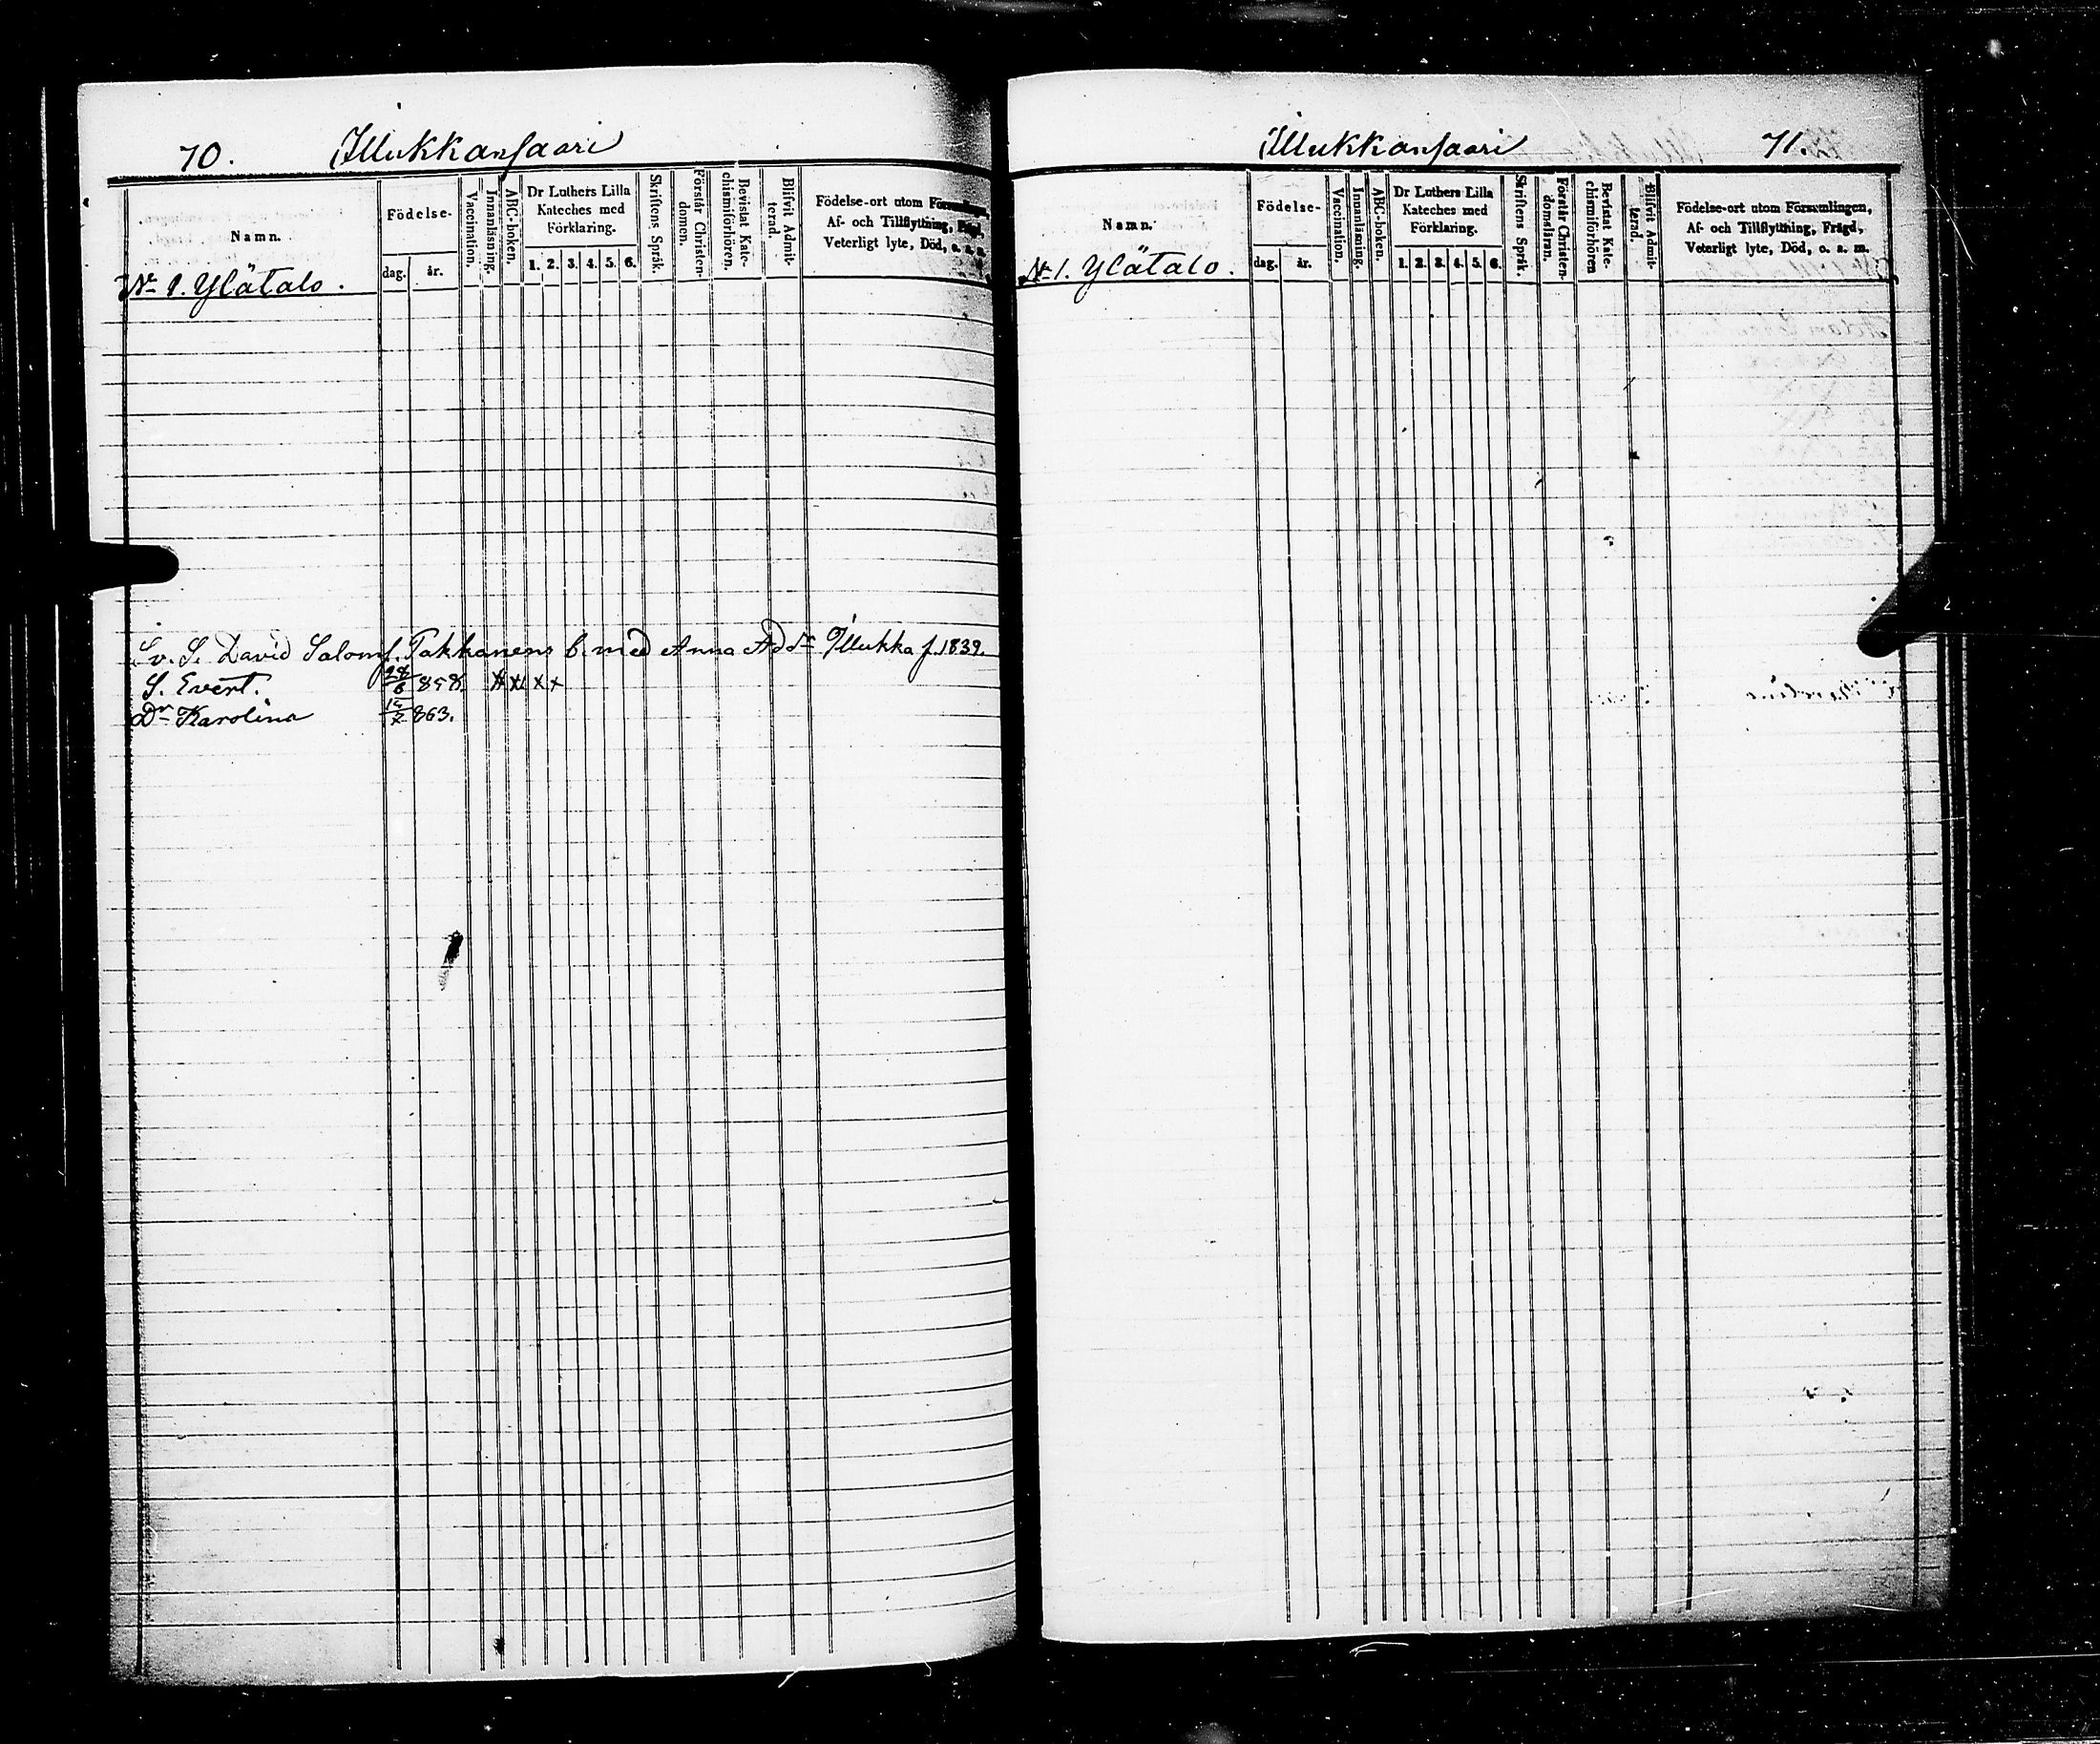 70. Illukkansaari
Namn.
Födelse-
dag. år.
Vaccination.
Innanläsning.
ABC-boken.
Dr Luthers Lilla
Kateches med
Förklaring.
1. 2. 3. 4. 5. 6.
Skriftens Språk.
Förstår Christen-
domen.
Bevistat Kate-
chismiförhören.
Blifvit Admit-
terad.
Födelse-ort utom Församlingen,
Af- och Tillflyttning, Frägd,
Veterligt lyte, Död, o. s. m.
No 1. Ylätalo.
Sv. S. David Salomss. Takkanens b. med Anna Add:r Illukka f. 1839.
S. Evert. 858. x x x x
Dr Karolina 863.
Illukkansaari 71.
Namn.
Födelse-
dag. år.
Vaccination.
Innanläsning.
ABC-boken.
Dr Luthers Lilla
Kateches med
Förklaring.
1. 2. 3. 4. 5. 6.
Skriftens Språk.
Förstår Christen-
domsläran.
Bevistat Kate-
chismiförhören
Blifvit Admit-
terad.
Födelse-ort utom Församlingen,
Af- och Tillflyttning, Frägd,
Veterligt lyte, Död, o. a. m.
No 1. Ylätalo.